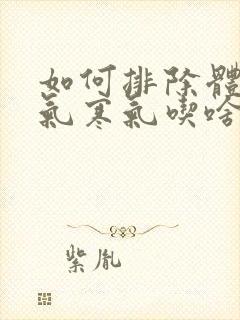 如何排除體
氣寒氣喫啥
紫胤